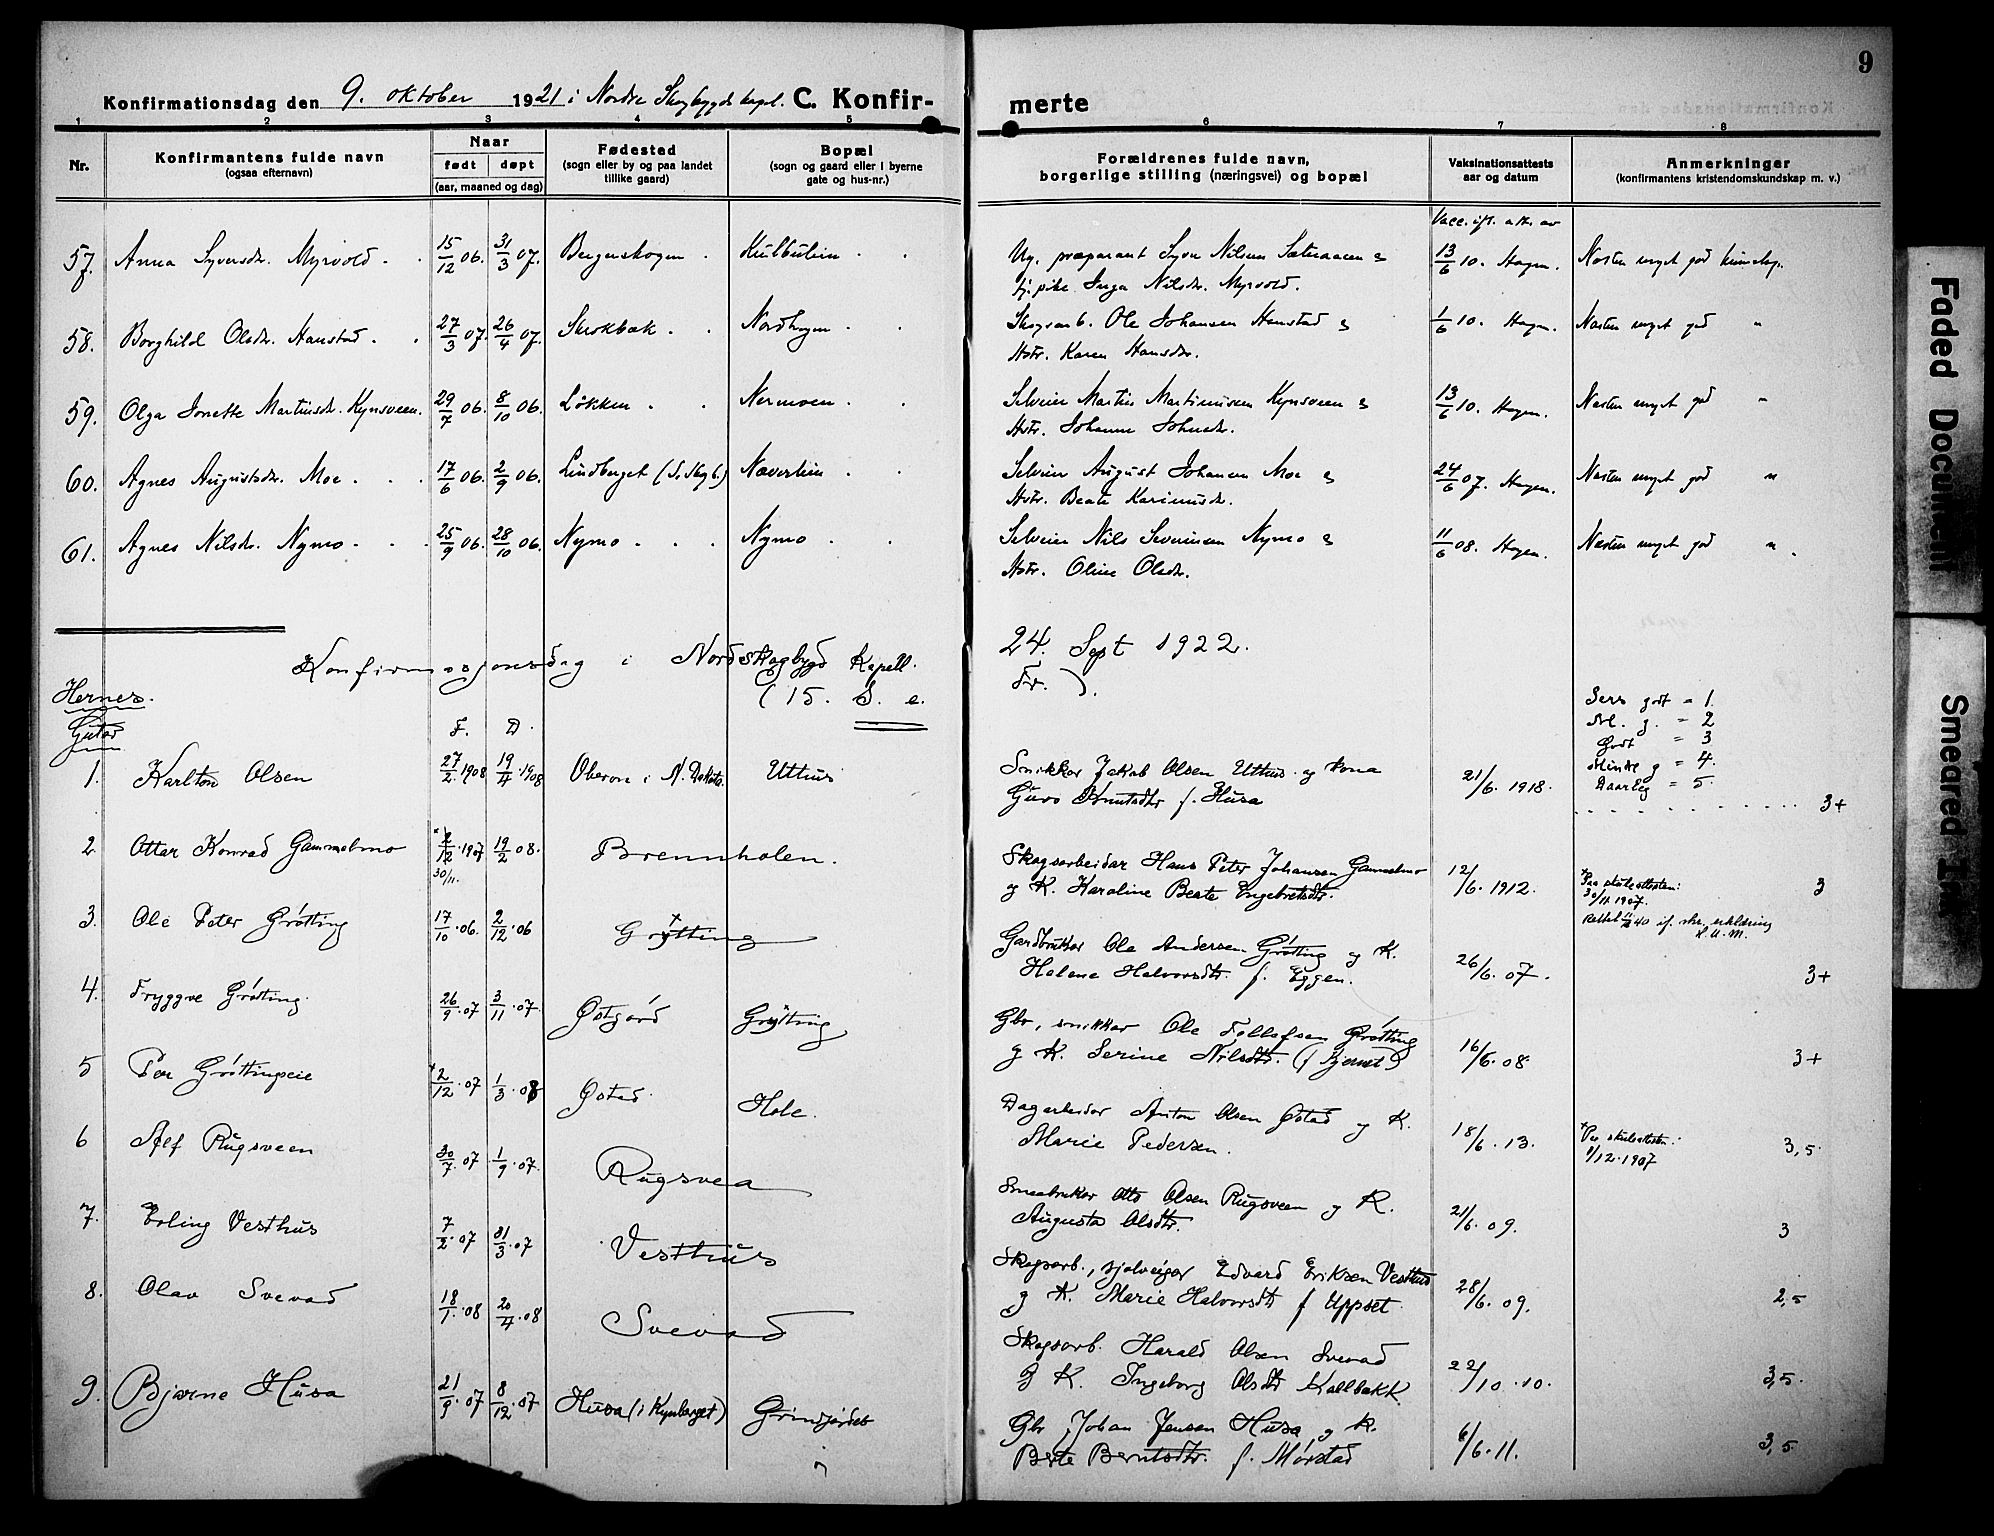 9
Konfirmationsdag den 9. oktober 1921 i Nordre Skogbygds kapel. C. Konfir-
merte
1 2 3 4 5 6 7 8
Nr.
Konfirmantens fulde navn
(ogsaa efternavn)
Naar
født døpt
(aar, maaned og dag)
Fødested
(sogn eller by og paa landet
tillike gaard)
Bopæl
(sogn og gaard eller i byerne
gate og hus-nr.)
Forældrenes fulde navn,
borgerlige stilling (næringsvei) og bopæl
Vaksinationsattests
aar og datum
Anmerkninger
(konfirmantens kristendomskundskap m. v.)
Vacc. ifl. att. av
57. Anna Syversdr. Myrvold 15/12 06. 31/3 07. Bergerskogen Kulbulien Ug. præparant Syver Nilsen Sætraaeen & 13/6 10. Hagen. Næsten meget god kundsk.
tj.pike Inga Nilsdr. Myrvold.
58. Borghild Olsdr. Hanstad 27/3 07. 26/4 07. Skrokbæk Nordhagen Skogsarb. Ole Johansen Hanstad & 1/6 10. Hagen. Næsten meget god "
Hstr. Karen Hansdr.
59. Olga Jonette Martinsdr. Kynsveen. 29/7 06. 8/10 06. Løkken Nermoen Selveier Martin Martinussen Kynsveen & 13/6 10. Hagen. Næsten meget god "
Hstr. Johanne Johnsdr.
60. Agnes Augustsdr. Moe 17/6 06. 2/9 06. Lindberget (S. Skogb.) Næverlien Selveier August Johansen Moe & 24/6 07. Hagen. Næsten meget god "
Hstr. Beate Karinusdr.
61. Agnes Nilsdr. Nymo 25/9 06. 28/10 06. Nymo Nymo Selveier Nils Severinsen Nymo & 11/6 08. Hagen. Næsten meget god "
Hstr. Oline Olsdr.
Konfirmasjonsdag i Nordskogbygd Kapell. 24. Sept 1922.
(15. S. e. Tr. ).
Hernes.
Gutar F. D.
Sers godt = 1.
Ml. g. = 2
Godt = 3
Mindre g = 4.
Daarleg = 5.
1. Karlton Olsen 27/2 1908 19/4 1908 Oberon i N. Dakota. Uthus Snikkar Jakob Olsen Uthus og kona 21/6. 1918. 3+
Guro Knutsdtr f. Husa
2 Ottar Konrad Gammelmo 2/12 1907 19/2 08. Brennholen. Skogsarbeidar Hans Peter Johansen Gammelmo 12/6. 1912. *Paa skuleattesten: 3
30/11. og K. Karoline Beate Engebretsdtr. 30/11 1907.
Rettet 11/2 40 if. skr. erklæring
K. U. M.
3. Ole Peter Grøtting 17/10 06. 2/12 06 Grøtting Gardbrukar Ole Andersen Grøtting og K. 26/6. 07. 3+
Helene Halvorsdtr. f. Eggen.
4. Tryggve Grøtting. 26/9 07 3/11 07 Østgård Grøtting Gbr, snikkar Ole Tollefsen Grøtting 16/6. 08. 3+
og K. Serine Nilsdtr. (f Bjernet)
5 Per Grøttingseie 2/12 07 1/3 08 Østad Hole. Dagarbeidar Anton Olsen Østad og K. 18/6. 13. *Paa skuleattesten: 3,5.
Marie Pedersen. 1/12. 1907
6 Alf Rugsveen 30/7 07 1/9 07. Rugsvea Smaabrukar Otto Olsen Rugsveen og K. 21/6. 09. 3
Augusta Olsdtr.
7. Erling Vesthus 7/2 07 31/3 07 Vesthus Skogsarb., sjølveigar Edvard Eriksen Vesthus 28/6. 09. 2,5
og K. Marie Halvorsdtr f Uppset.
8. Olav Svevad 18/1 08 20/4 08 Svevad Skogsarb. Harald Olsen Svevad 22/10. 10. 3,5.
og K. Ingeborg Olsdtr Kallbækk
9. Bjarne Husa 21/9 07 8/12 07 Husa (i Kynberget) Grindjordet Gbr Johan Jensen Husa og K. 6/6. 11. 3,5
Berte Berntsdtr. f. Mørstad
Faded Document
Smeared Ink